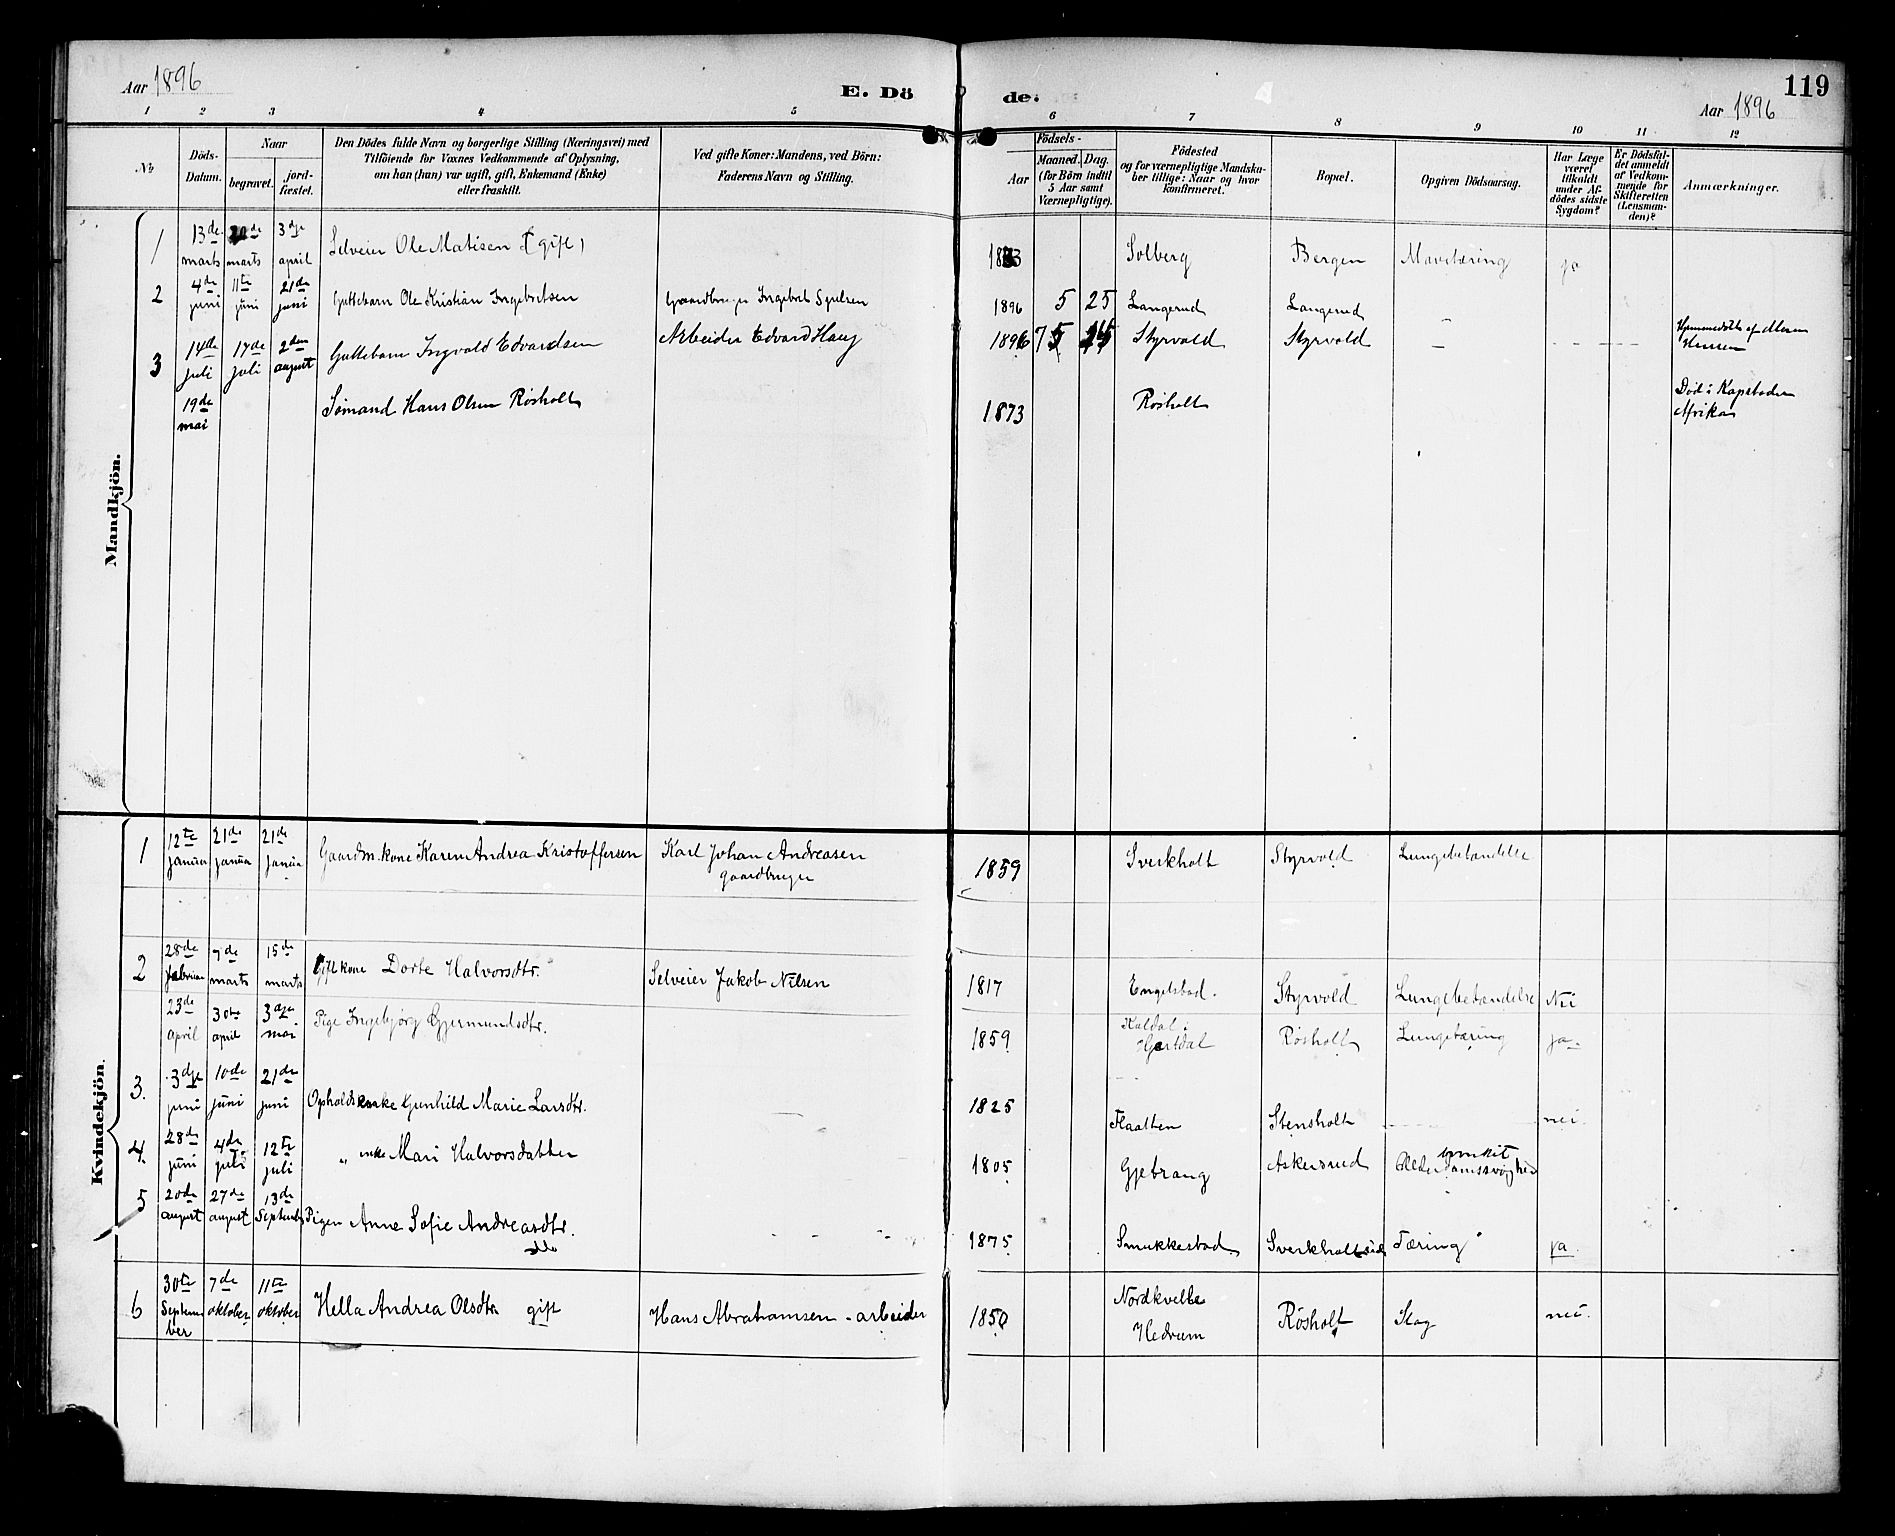 119
Aar 1896
E. Dö de.
Aar 1896
1 2 3 4 5 6 7 8 9 10 11 12
No
Döds-
Datum.
Naar
begravet.
jord-
fæstet.
Den Dödes fulde Navn og borgerlige Stilling (Næringsvei) med
Tilföiende for Voxnes Vedkommende af Oplysning,
om han (hun) var ugift, gift, Enkemand (Enke)
eller fraskilt.
Ved gifte Koner: Mandens, ved Börn:
Faderens Navn og Stilling.
Födsels-
Aar
Maaned. Dag.
(for Börn indtil
5 Aar samt
Værnepligtige).
Födested
og for værnepligtige Mandska-
ber tillige: Naar og hvor
konfirmeret.
Bopæl.
Opgiven Dödsaarsag.
Har Læge
været
tilkaldt
under Af-
dödes sidste
Sygdom?
Er Dödsfal-
det anmeldt
af Vedkom-
mende for
Skifteretten
(Lensman-
den)?
Anmærkninger.
Mandkjön.
1 13de marts marts 3dje april Selveier Ole Matisen (gift) Solberg Bergen Mavetæring ja
2 4de juni 11te juni 21de juni Guttebarn Ole Kristian Ingebretsen Gaardbruger Ingebret 1896 5 25 Langerud Langerud –
3 14de juli 17de juli 2den august Guttebarn Ingvald Edvardsen Arbeider Edvard Haug 1896 7 Styrvold Styrvold – Hjemmedøbt af
19de mai Sømand Hans Olsen Røsholt 1873 Røsholt Død i Kapstaden
Afrika
Kvindekjön.
1 12te januar 21de januar 21de januar Gaardm. kone Karen Andrea Kristoffersen Karl Johan Andreasen
gaardbruger 1859 Sverkholt Styrvold Lungebetændelse
2 28de februar 9de marts 15de marts Gift kone Dorte Halvorsdtr. Selveier Jakob Nilsen 1817 Engelstad. Styrvold Lungebetændelse Nei
23de april 30te april 3dje mai Pige Ingebjørg Gjermundsdtr. 1859 Kaldal i
Hjertdal Røsholt Lungetæring ja.
3. 3dje juni 10de juni 21de juni Opholdsenke Gunhild Marie Larsdtr. 1825 Flaatten Stensholt nei.
4. 28de juni 4de juli 12te juli " enke Mari Halvorsdatter 1805 Gjetrang Askersrud
5 20de august 27de august 13de September Pigen Anne Sofie Andreasdtr. 1875 Smukkestad Tæring ja.
6 30te September 7de oktober 11te oktober Hella Andrea Olsdtr gift Hans Abrahamsen - arbeider 1850 Nordkvelle
Hedrum Røsholt Slag nei.